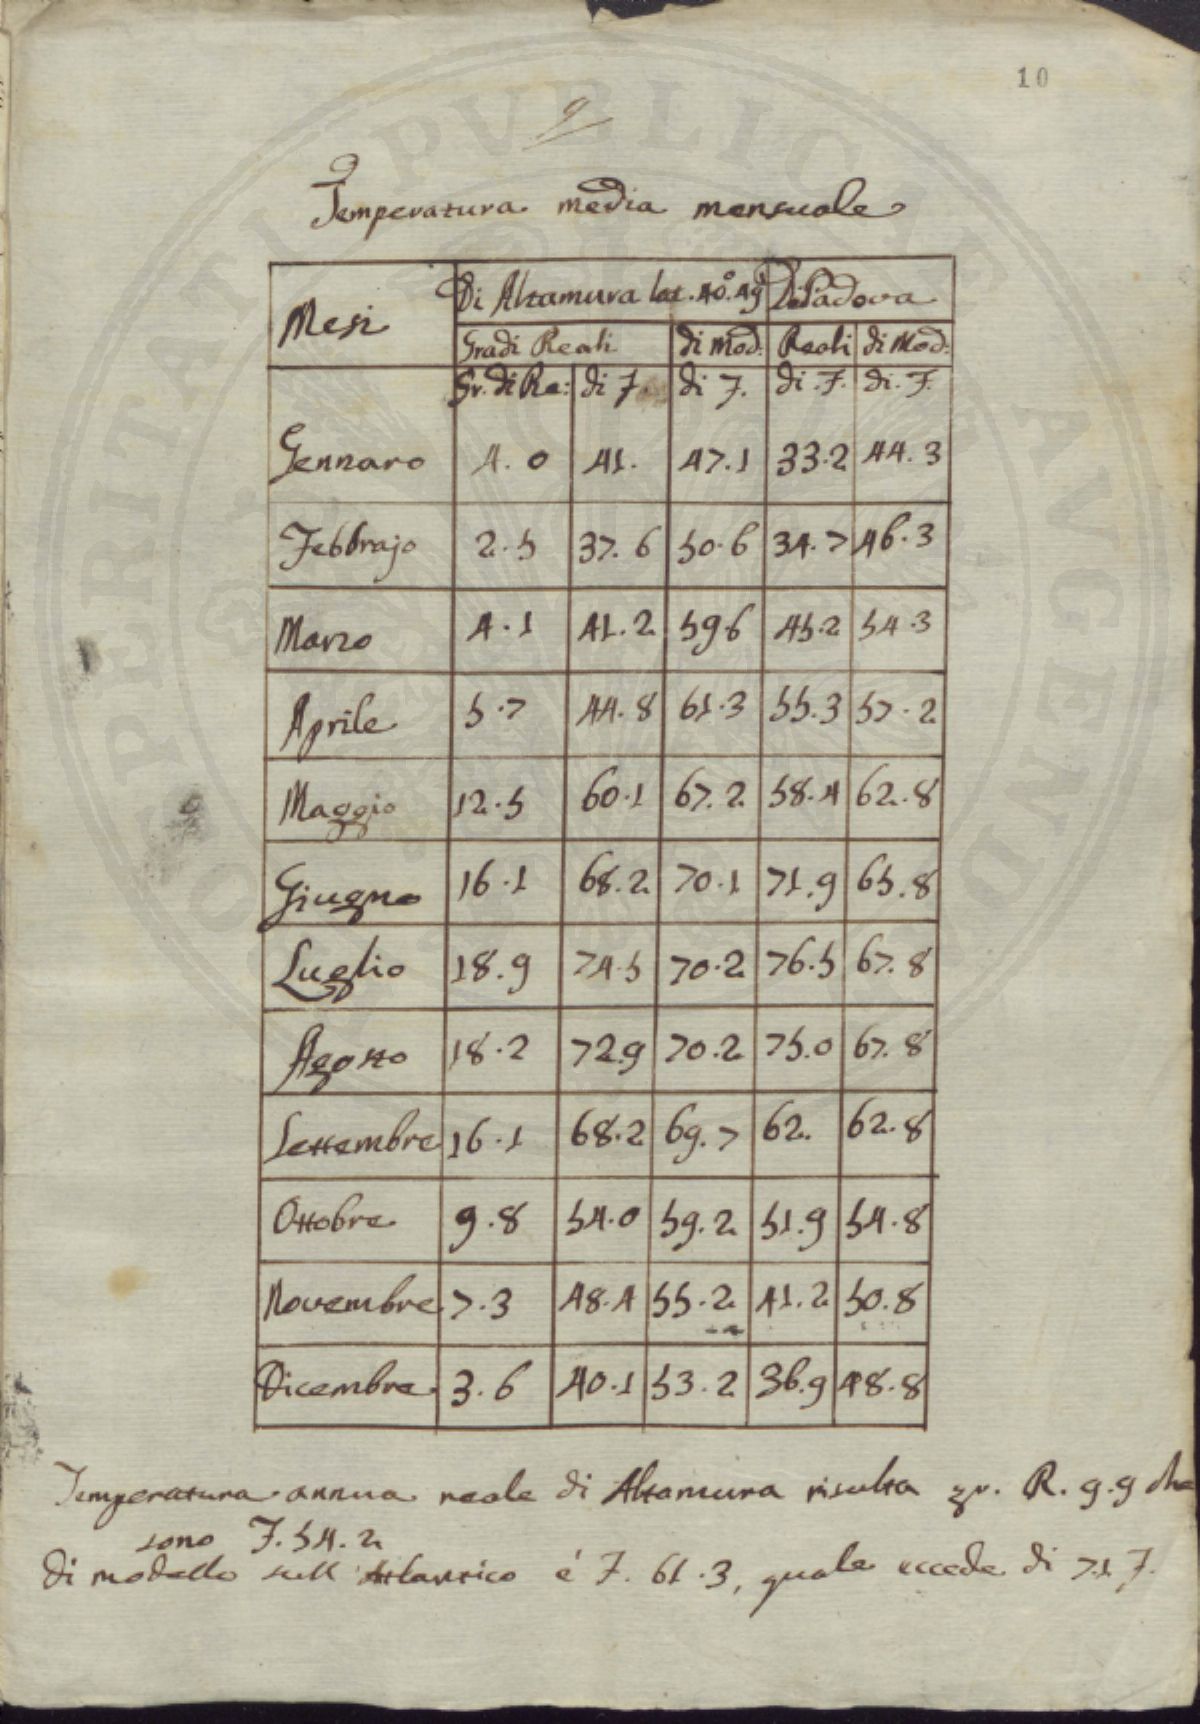 10
9
Temperatura media mensuale
Mesi Di Altamura lat. 40.° 49' Di Padova
Gradi Reali di Mod: Reali di Mod:
Gr. di Re: di F. di F. di F. di F.
Gennaro 4. 0 41. 47.1 33.2 44.3
Febbrajo 2.5 37.6 50.6 34.7 46.3
Marzo 4.1 41.2 596 45.2 54.3
Aprile 5.7 44.8 61.3 55.3 57.2
Maggio 12.5 60.1 67.2 58.4 62.8
Giugno 16.1 68.2 70.1 71.9 65.8
Luglio 18.9 74.5 70.2 76.5 67.8
Agosto 18.2 729 70.2 75.0 67.8
Settembre 16.1 68.2 69.7 62. 62.8
Ottobre 9.8 54.0 59.2 51.9 54.8
Novembre 7.3 48.4 55.2 41.2 50.8
Dicembre 3.6 40.1 53.2 36.9 48.8
Temperatura annua reale di Altamura risulta gr. R. 9.9 che
sono F. 54.2
di modello sull' Atlantico é F. 61.3, quale eccede di 7.1 F.